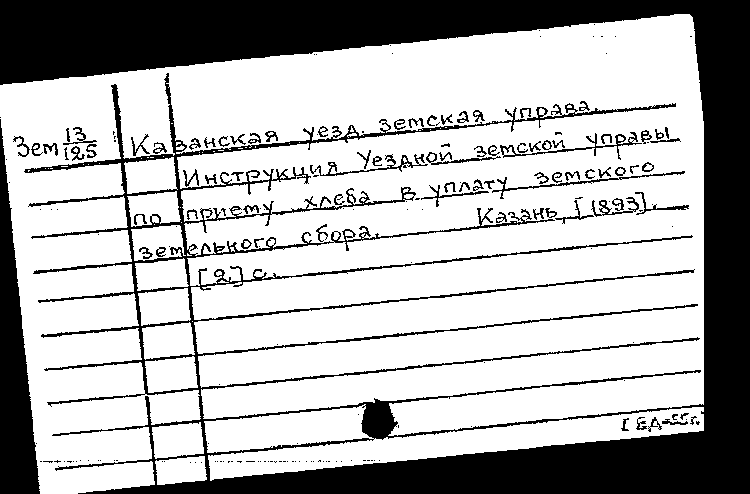 Зем 13/125 Казанская уезд. земская управа.
Инструкция Уездной земской управы
по приему хлеба в уплату земского
земельного сбора. Казань, [1893].
[2] с.